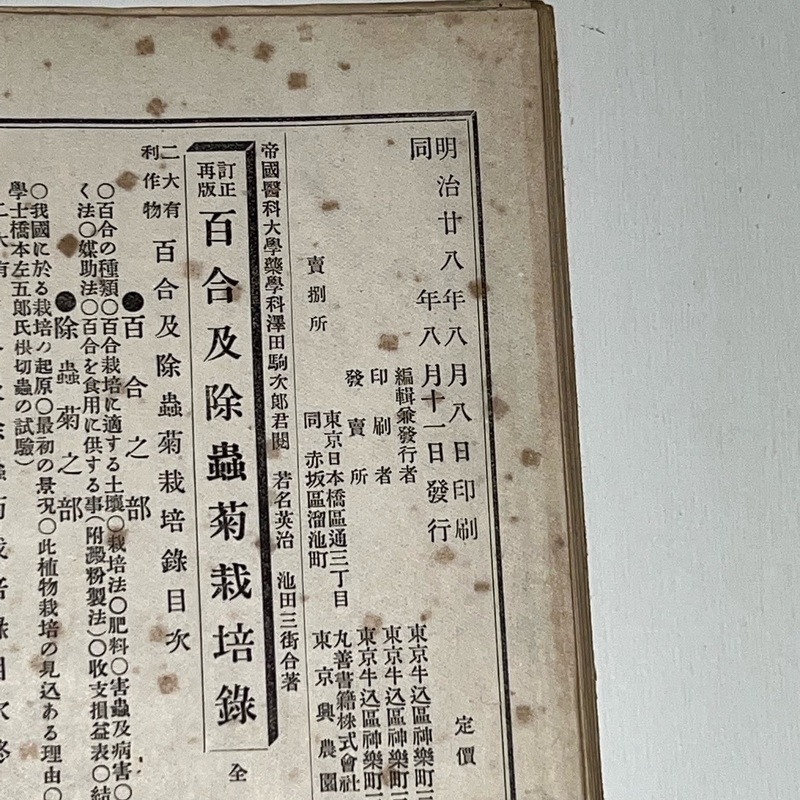 明治廿八年八月八日印刷
同年八月十一日發行
定價
編輯兼發行者 東京牛込區神樂町
印刷者 東京牛込區神樂町
發賣所 東京牛込區神樂町
賣捌所
東京日本橋區通三丁目 丸善書籍株式會社
同赤坂區溜池町 東京興農園
帝國醫科大學藥學科澤田駒次郎君閱 若名英治 池田三街合著
訂正再版 百合及除蟲菊栽培錄 全
二大有利作物 百合及除蟲菊栽培錄目次
●百合之部
○百合の種類○百合栽培に適する土壤○栽培法○肥料○害蟲及病害○
く法○媒助法○百合を食用に供する事(附澱粉製法)○收支損益表○結
●除蟲菊之部
○我國に於る栽培の起原○最初の景況○此植物栽培の見込ある理由○
學士橋本左五郎氏根切蟲の試驗)